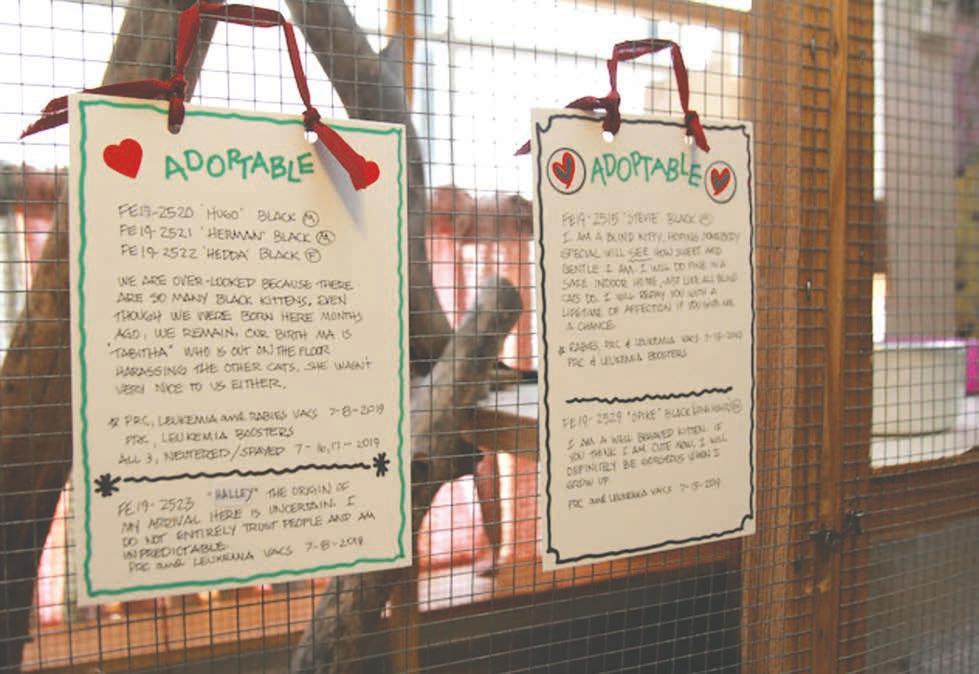 ADORTABLE
FE19-2520 "HUGO" BLACK (M)
FE19-2521 "HERMAN" BLACK (M)
FE19-2522 "HEDDA" BLACK (F)
WE ARE OVER-LOOKED BECAUSE THERE
ARE SO MANY BLACK KITTENS. EVEN
THOUGH WE WERE BORN HERE MONTHS
AGO, WE REMAIN. OUR BIRTH MA IS
"TABITHA" WHO IS OUT ON THE FLOOR
HARASSING THE OTHER CATS. SHE WASN'T
VERY NICE TO US EITHER.
PRC, LEUKEMIA and RABIES VACS 7-8-2019
PRC, LEUKEMIA BOOSTERS
ALL 3, NEUTERED/SPAYED 7-16,17-2019
FE19-2523 "HALLEY" THE ORIGIN OF
MY ARRIVAL HERE IS UNCERTAIN. I
DO NOT ENTIRELY TRUST PEOPLE AND AM
UNPREDICTABLE.
PRC and LEUKEMIA VACS 7-8-2019
ADOPTABLE
FE19-2515 "STEVIE" BLACK
I AM A BLIND KITTY, HOPING SOMEBODY
SPECIAL WILL SEE HOW SWEET AND
GENTLE I AM. I WILL DO FINE IN A
SAFE INDOOR HOME, JUST LIKE ALL BLIND
CATS DO. I WILL REPAY YOU WITH A
LIFETIME OF AFFECTION IF YOU GIVE ME
A CHANCE.
RABIES, PRC & LEUKEMIA VACS
PRC & LEUKEMIA BOOSTERS
FE19-2529 "SPIKE" BLACK
I AM A WELL BEHAVED KITTEN. IF
YOU THINK I AM CUTE NOW, I WILL
DEFINITELY BE GORGEOUS WHEN I
GROW UP.
PRC and LEUKEMIA VACS